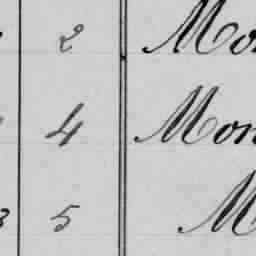 2 Mon
4 Mon
3 5 M